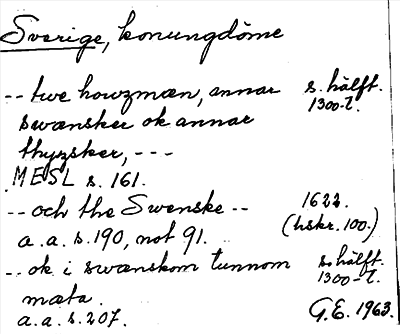 Sverige, konungdöme
-- twe howzmæn, annar s. hälft.
swænsker ok annar 1300-t.
thyzsker, ---
MESL s. 161.
-- och the Swenske -- 1622
a.a. s. 190, not 91. (hskr. 100.)
-- ok i swænskom tunnom s. hälft.
mata. 1300-t.
a.a. s. 207. G.E. 1963.